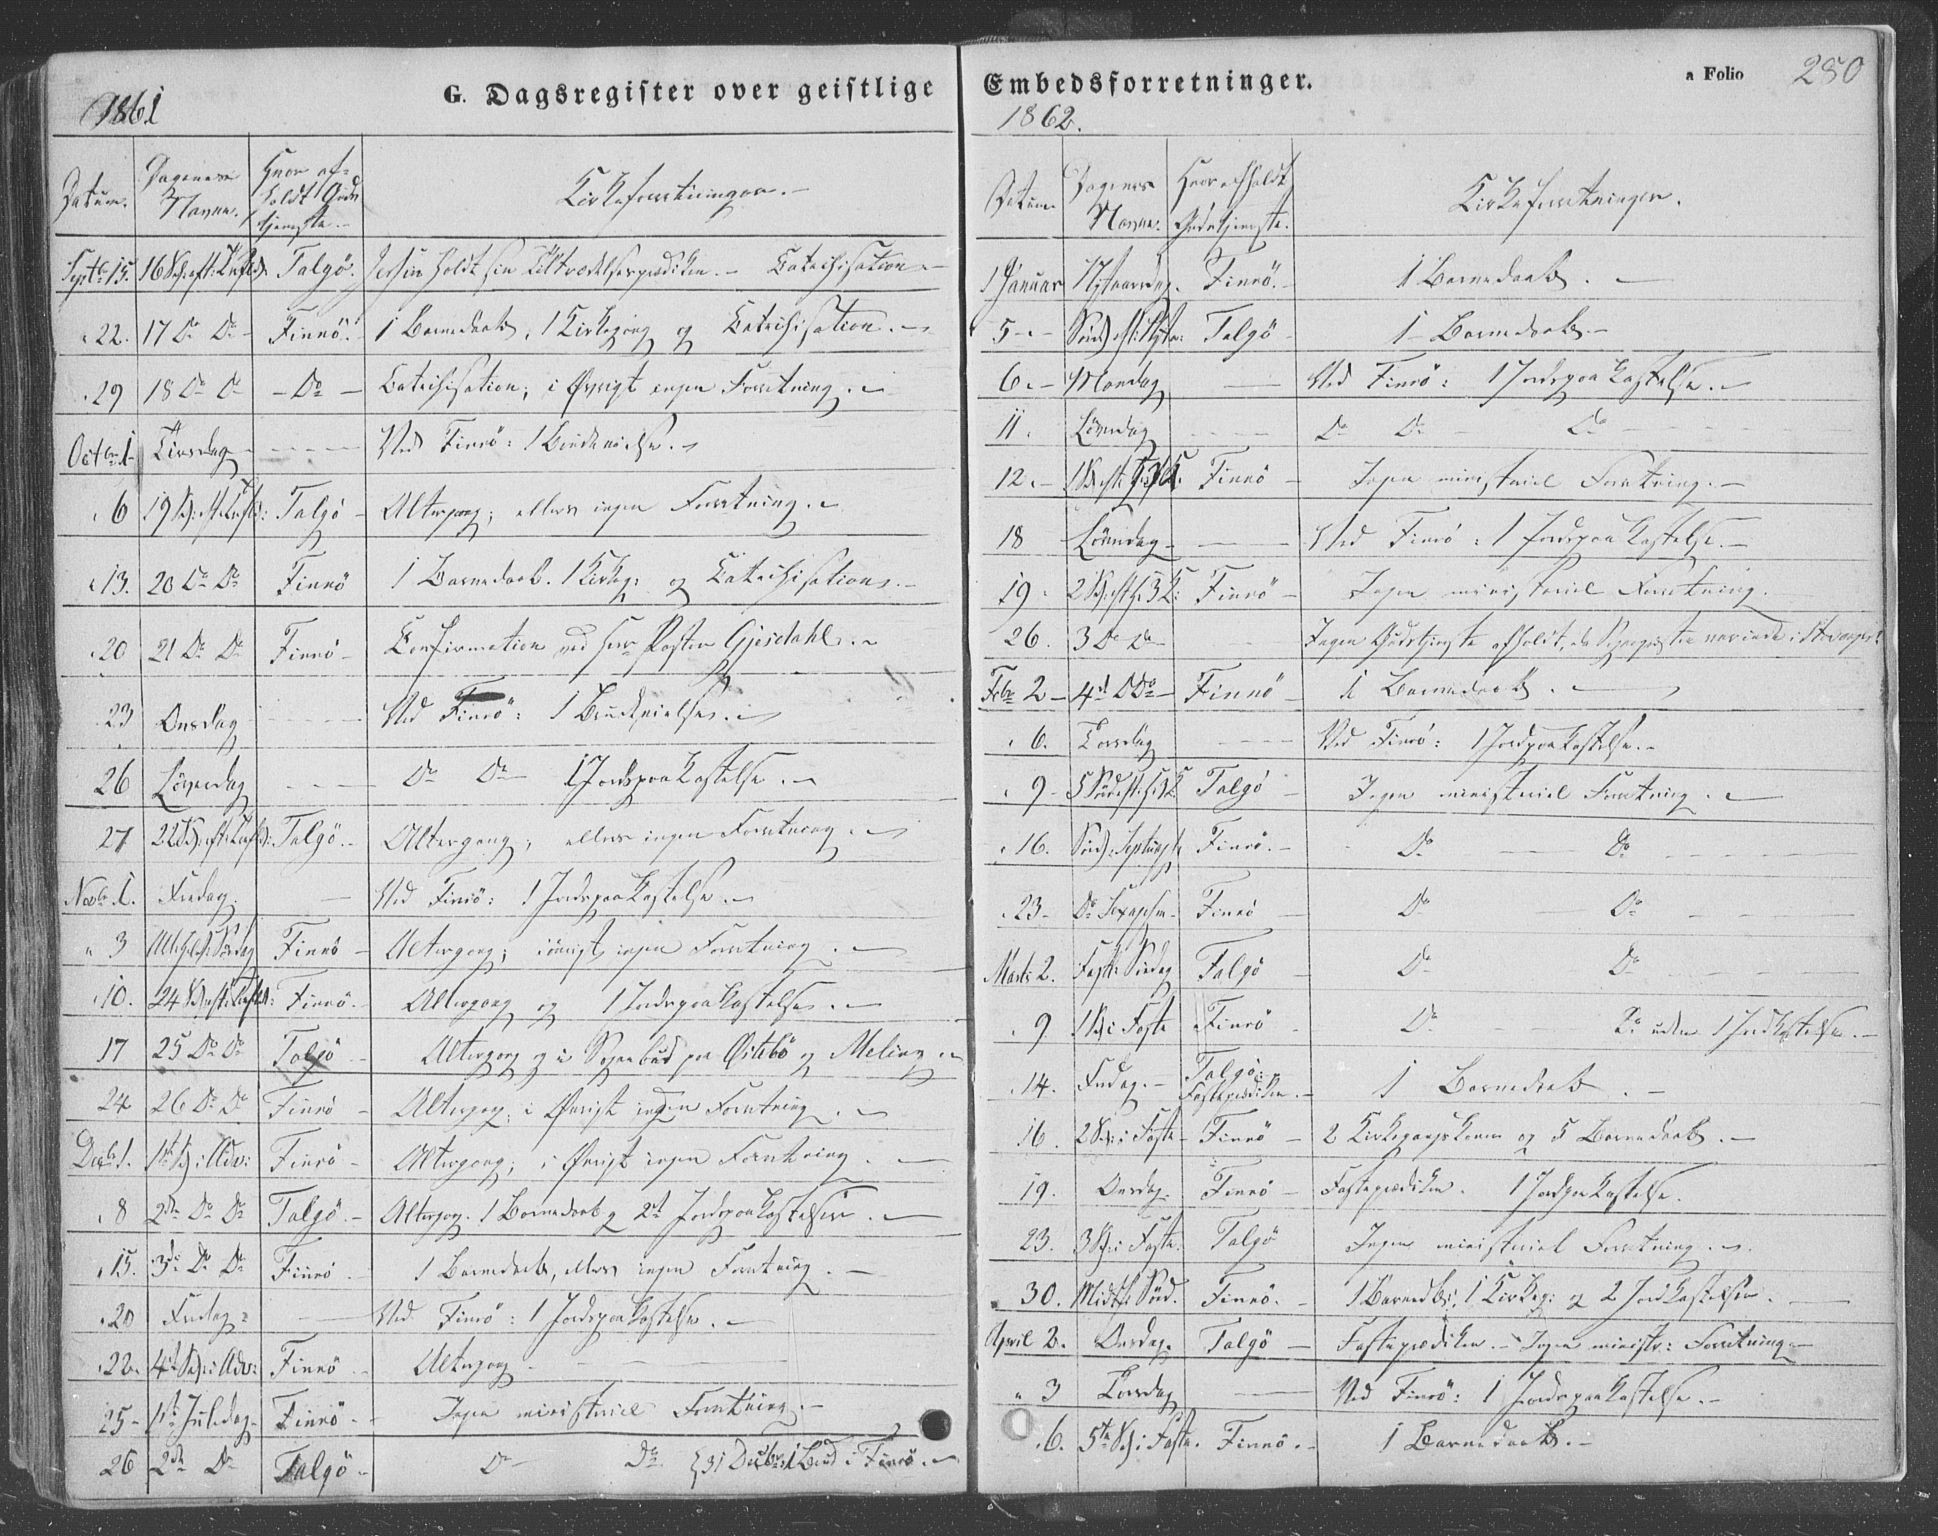 1861
G. Dagsregister over geistlige
Datum. Dagenes Navne. Hvor afholdt Gudstjeneste. Kirkeforretninger.
Septbr 15. 16 S: eft: Trefold: Talgö. holdt sin Tiltrædelsesprædiken. - Catechisation. -
" 22. 17 Do Do - Finnö. 1 Barnedaab, 1 Kirkegang og Catechisation. -
" 29 18 Do Do - Do - Catechisation; i Øvrigt ingen Forretning. -
Octbr 1 Tirsdag - - - - Ved Finnö: 1 Brudevielse. -
" 6 19 S: eft: Trefold: Talgö - Altergang; ellers ingen Forretning. -
" 13. 20 Do Do Finnö 1 Barnedaab. 1 Kirkeg: og Catechisation. -
" 20 21 Do Do Finnö - Confirmation ved Herr Pastor Gjesdahl. -
23 Onsdag - - - - Ved Finnö: 1 Brudevielse. -
26 Löverdag - - - - Do Do - 1 Jordspaakastelse. -
27 22 S: eft: Trefold: Talgö. - Altergang; ellers ingen Forretning. -
Novbr 1. Fredag. - Ved Finnö: 1 Jordspaakastelse. -
" 3 Allehelg: Söndag Finnö - Altergang; iövrigt ingen Forretning. -
" 10. 24 S: eft: Trefold: Finnö. - Altergang og 1 Jordspaakastelse. -
17 25 Do Do Talgö - Altergang og i Sognebud paa Østebö og Meling. -
24 26 Do Do Finnö - Altergang; i Øvrigt ingen Forretning. -
Decbr 1. 1ste S: i Adv: Finnö - Altergang; i Øvrigt ingen Forretning. -
" 8 2den Do Do Talgö. - Altergang. 1 Barnedaab og 2de Jordspaakastelser. -
" 15. 3die Do Do Finnö - 1 Barnedaab, ellers ingen Forretning. -
" 20 Fredag - Ved Finnö: 1 Jordspaakastelse. -
" 22. 4de S: i Adv: Finnö - Altergang - - - -
25 - 1ste Juledag - Finnö. - Ingen ministeriel Forretning. -
26 2den Do Talgö - Do - Do {31 Decbr: 1 Brud i Finnö. -
Embedsforretninger.
a Folio 250
1862.
Datum Dagenes Navne. Hvor afholdt Gudstjeneste. Kirkeforretninger.
1 Januar Nytaarsdag. Finnö. - 1 Barnedaab. -
5 - - Sönd: eft: Nytaar: Talgö - 1 Barnedaab. -
6. - Mandag - Ved Finnö: 1 Jordspaakastelse. -
11. Löverdag - - - - Do Do - Do - - - -
12. - 1 S: eft: H 3 K: Finnö - Ingen ministeriel Forretning. -
18 Löverdag - - - - Ved Finnö: 1 Jordspaakastelse. -
19. 2 S: eft: H 3 K: Finnö - Ingen ministeriel Forretning.
26. 3 Do Do - - - Ingen Gudstjeneste afholdt, da Sognepræsten var inde i Stavanger.
Febr 2 - 4de Do Do - Finnö - 1 Barnedaab. -
" 6. Torsdag - - - - Ved Finnö: 1 Jordspaakastelse. -
" 9 - 5 Sönd: eft: H 3 K: Talgö - Ingen ministeriel Forretning. -
" 16. Sönd: Septuag: Finnö. - Do - Do - - - -
" 23 - Do Sexagesim - Finnö - Do - Do - - - -
Marts 2. Faste Söndag Talgö - Do Do - - - -
" 9 1 S: i Faste Finnö - Do - Do uden 1 Jordkastelse. -
" 14. Fredag. - Talgö: Fasteprædiken. - 1 Barnedaab. -
16. 2 S: i Faste - Finnö - 2 Kirkegangskoner og 5 Barnedaab. -
19. Onsdag. Finnö - Fasteprædiken. 1 Jordpaakastelse.
23. 3 S: i Faste. Talgö Ingen ministeriel Forretning. -
30. Midf: Sönd. Finnö. - 1 Barnedb:, 1 Kirkeg: og 2 Jordkastelser. -
April 2. Onsdag. Talgö - Fasteprædiken. - Ingen ministr: Forretning. -
" 3 Torsdag - Ved Finnö: 1 Jordspaakastelse. -
" 6. 5te S: i Faste. Finnö. - 1 Barnedaab. -